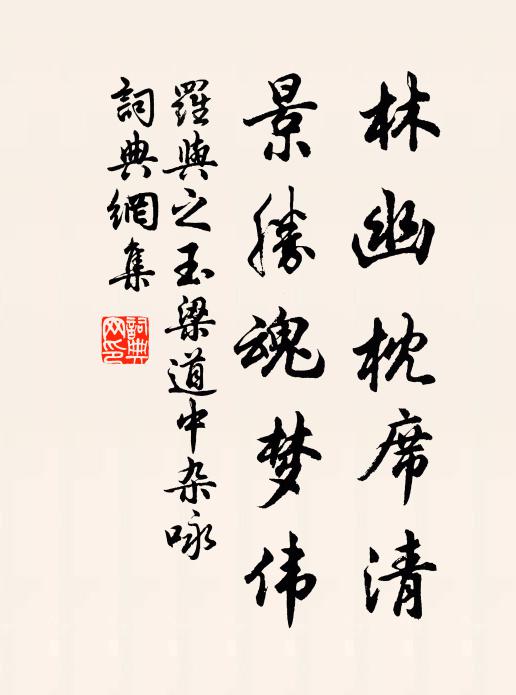 林幽枕席清
景勝魂梦伟
羅與之玉梁道中杂咏
詞典網集
詞典網印